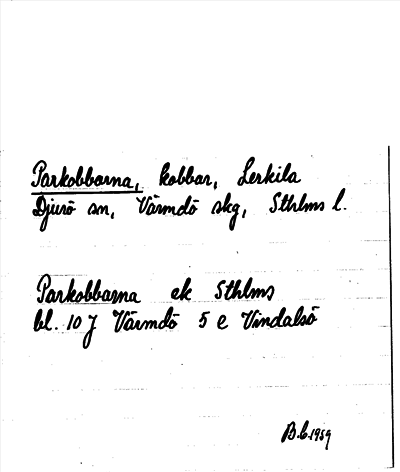 Parkobbarna, kobbar, Lerkila
Djurö sn, Värmdö skg, Sthlms l.
Parkobbarna ek Sthlms
bl. 10 J Värmdö 5 e Vindalsö
B.C. 1959